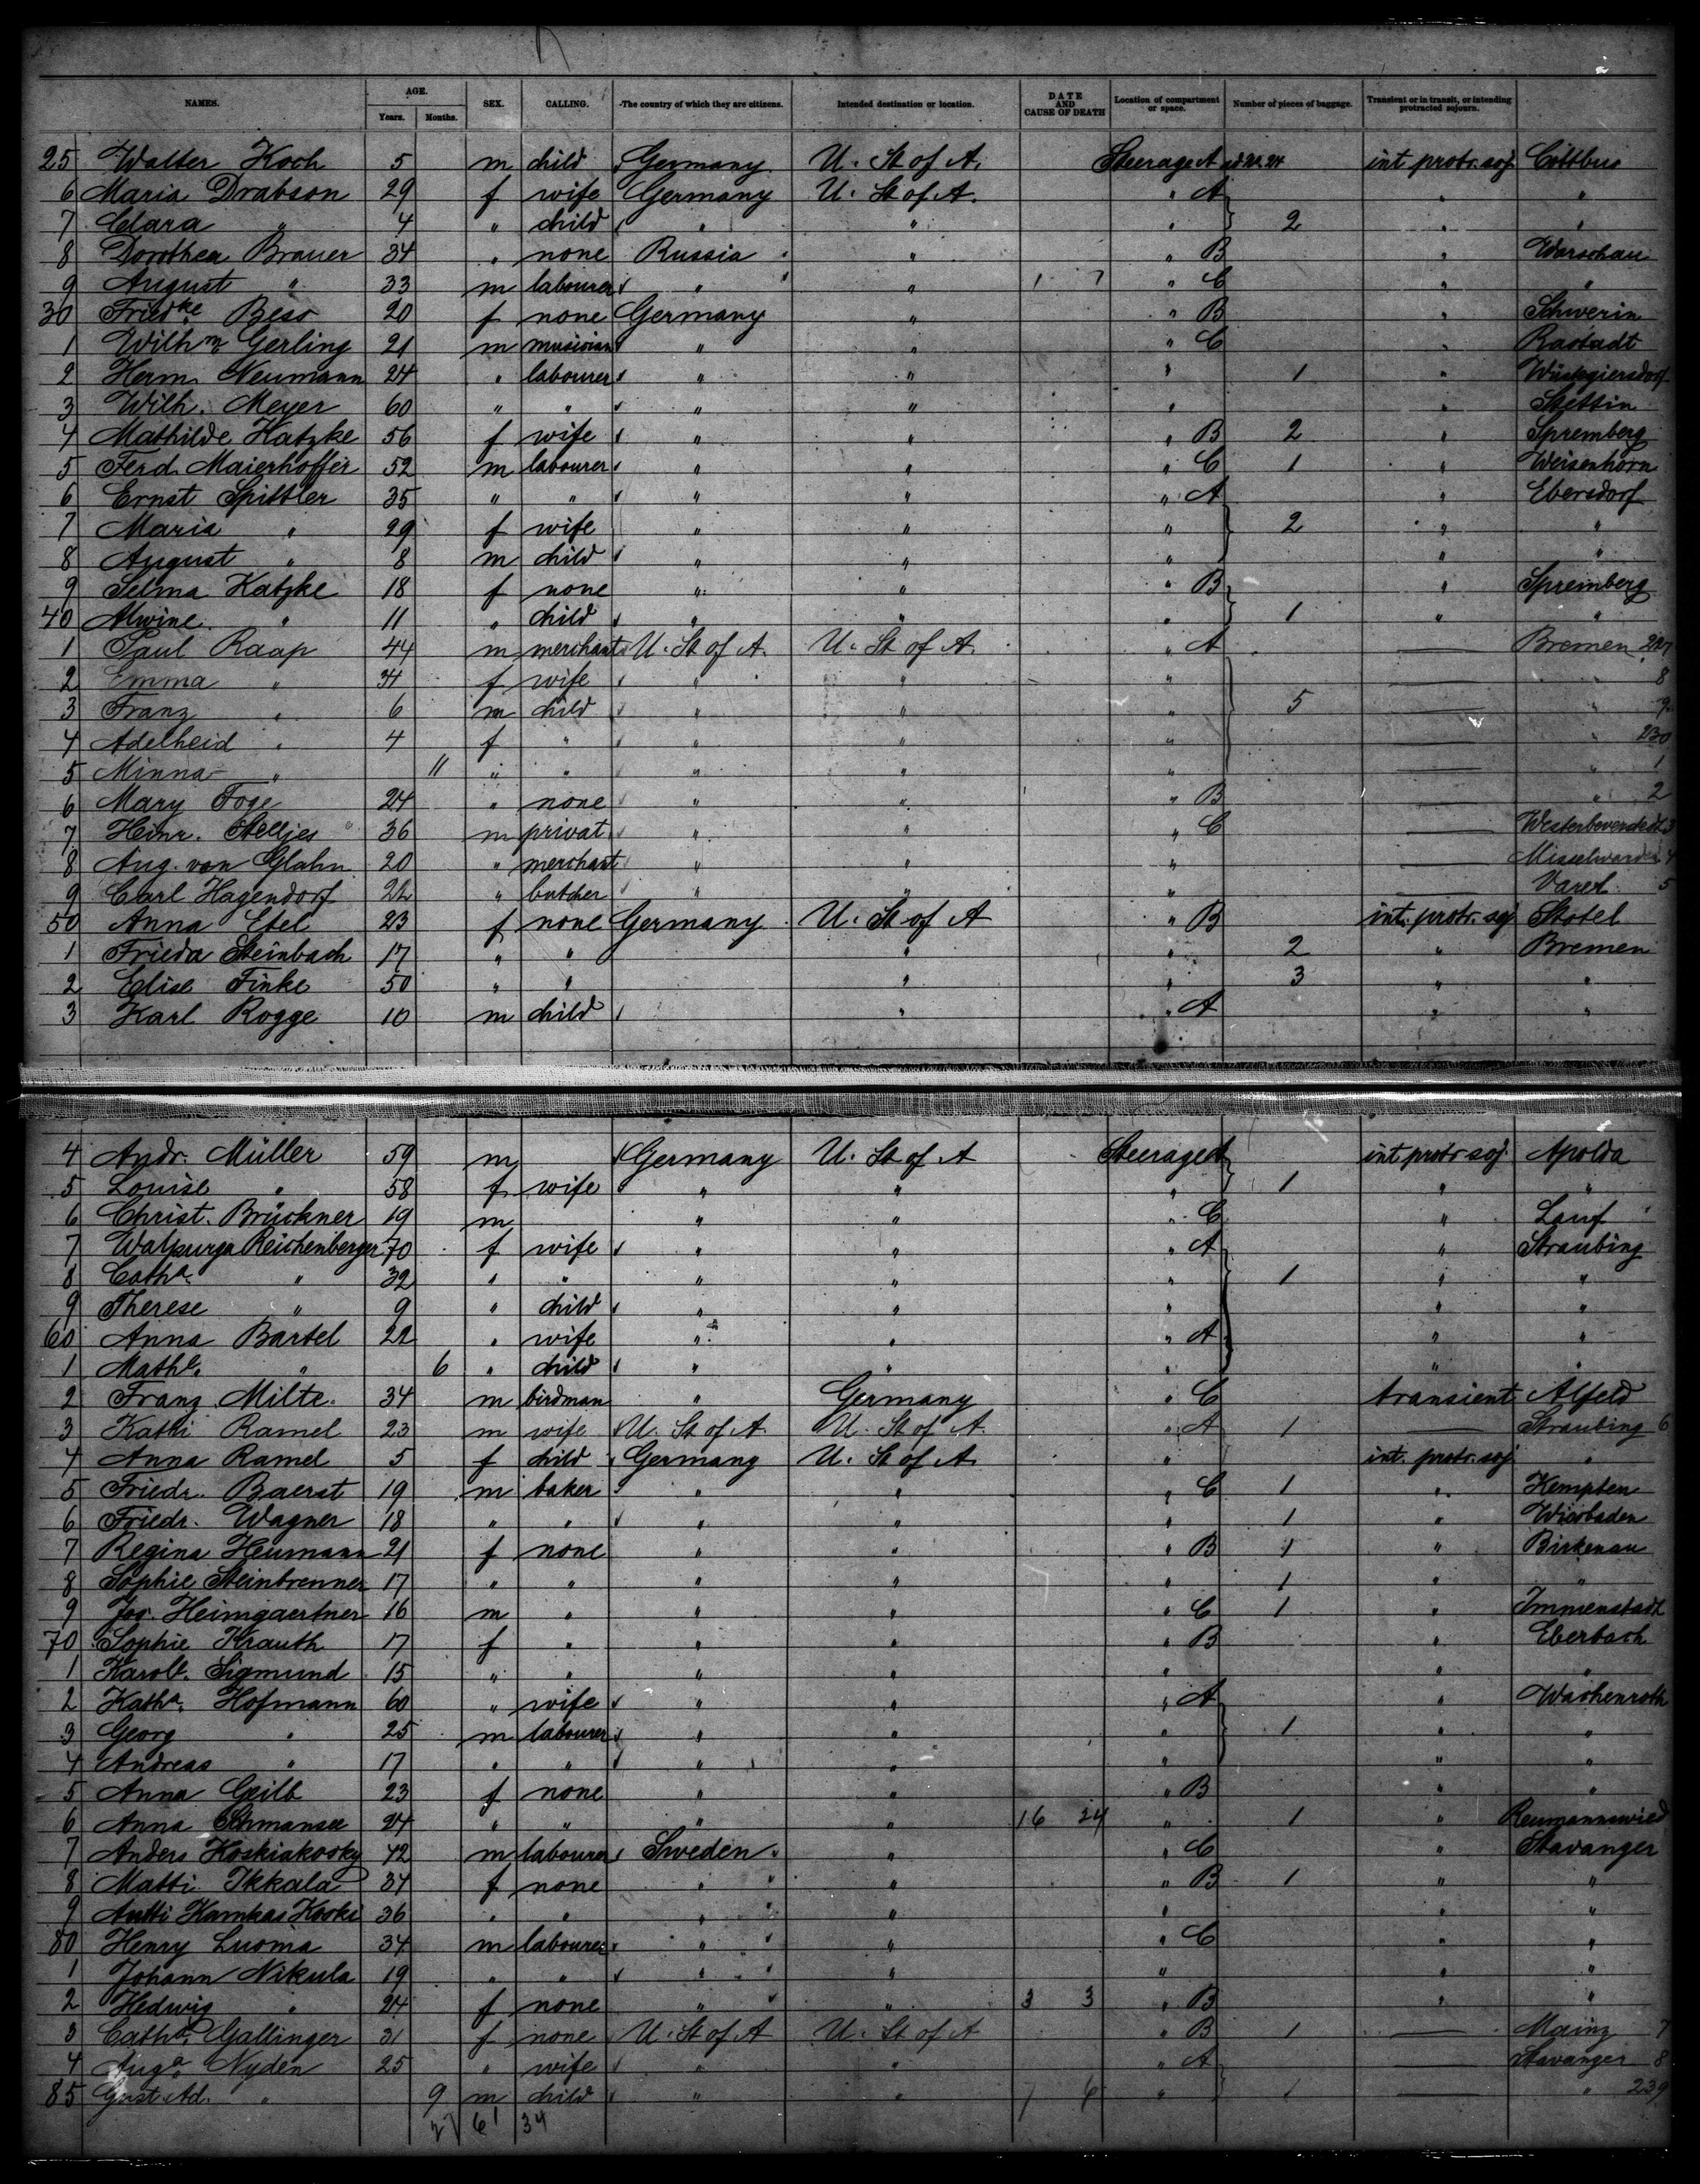 NAMES. AGE. SEX. CALLING. The country of which they are citizens. Intended destination or location. DATE AND CAUSE OF DEATH Location of compartment or space. Number of pieces of baggage. Transient or in transit, or intending protracted sojourn.
Years. Months.
25 Walter Koch 5 m child Germany U. St of A. Steerage A int protr. soj. Cottbus
6 Maria Drabson 29 f wife Germany U. St of A. " A " "
7 Clara " 4 " child " " " 2 " "
8 Dorothea Brauer 34 " none Russia " " B " Warschau
9 August " 33 m labourer " " 1 7 " C " "
30 Friedke Bess 20 f none Germany " " B " Schwerin
1 Wilhm Gerling 21 m musician " " " C " Rastadt
2 Herm. Neumann 24 " labourer " " " 1 " Wüstegiersdorf
3 Wilh. Meyer 60 " " " " " " Stettin
4 Mathilde Katzke 56 f wife " " " B 2 " Spremberg
5 Ferd. Maierhoffer 52 m labourer " " " C 1 " Weisenhorn
6 Ernst Spittler 35 " " " " " A " Ebersdorf
7 Maria " 29 f wife " " " 2 " "
8 August " 8 m child " " " " "
9 Selma Katzke 18 f none " " " B " Spremberg
40 Alwine " 11 " child " " " 1 " "
1 Paul Raap 44 m merchant U. St of A. U. St of A. " A — Bremen 227
2 Emma " 34 f wife " " " — " 8
3 Franz " 6 m child " " " 5 — " 9
4 Adelheid " 4 f " " " " — " 230
5 Minna " 11 " " " " " — " 1
6 Mary Foge 24 " none " " " B — " 2
7 Heinr. Stelljes 36 m privat " " " C — Westerbeverstedt 3
8 Aug. von Glahn 20 " merchant " " " — Misselwarden 4
9 Carl Hagendorf 22 " butcher " " " — Varel 5
50 Anna Etel 23 f none Germany U. St of A " B int. protr. soj Stotel
1 Frieda Steinbach 17 " " " " 2 " Bremen
2 Elise Finke 50 " " " " 3 " "
3 Karl Rogge 10 m child " " A " "
4 Andr. Müller 59 m Germany U. St of A Steerage A int protr soj. Apolda
5 Louise " 58 f wife " " " 1 " "
6 Christ. Brückner 19 m " " " C " Lauf
7 Walpurga Reichenberger 70 f wife " " " A " Straubing
8 Catha. " 32 " " " " " 1 " "
9 Therese " 9 " child " " " " "
60 Anna Bartel 22 " wife " " " A " "
1 Mathe. " 6 " child " " " " "
2 Franz Milte. 34 m birdman " Germany " C transient Alfeld
3 Kathi Ramel 23 m wife U. St of A. U. St of A. " A 1 — Straubing 6
4 Anna Ramel 5 f child Germany U. St of A. " int. protr. soj. "
5 Friedr. Baerst 19 m baker " " " C 1 " Kempten
6 Friedr. Wagner 18 " " " " " 1 " Wiesbaden
7 Regina Heumann 21 f none " " " B 1 " Birkenau
8 Sophie Steinbrenner 17 " " " " " 1 " "
9 Jos. Heimgaertner 16 m " " " " C 1 " Immenstadt
70 Sophie Krauth 17 f " " " " B " Eberbach
1 Karole. Sigmund 15 " " " " " " "
2 Katha. Hofmann 60 " wife " " " A " Wachenroth
3 Georg " 25 m labourer " " " 1 " "
4 Andreas " 17 " " " " " " "
5 Anna Geilb 23 f none " " " B " "
6 Anna Schmansee 24 " " " " 16 24 " 1 "
7 Anders Koskiakosky 42 m labourer Sweden " " C " Stavanger
8 Matti Ikkala 34 f none " " " B 1 " "
9 Antti Kamkas Koski 36 " " " " " " "
80 Henry Luoma 34 m labourer " " " C " "
1 Johann Nikula 19 " " " " " " "
2 Hedwig " 24 f none " " 3 3 " B " "
3 Catha. Gallinger 31 f none U. St of A U. St of A " B 1 — Mainz 7
4 Auga. Nyden 25 " wife " " " A — Stavanger 8
85 Gust. Ad. " 9 m child " " 7 6 " 1 — " 239
27 61 34